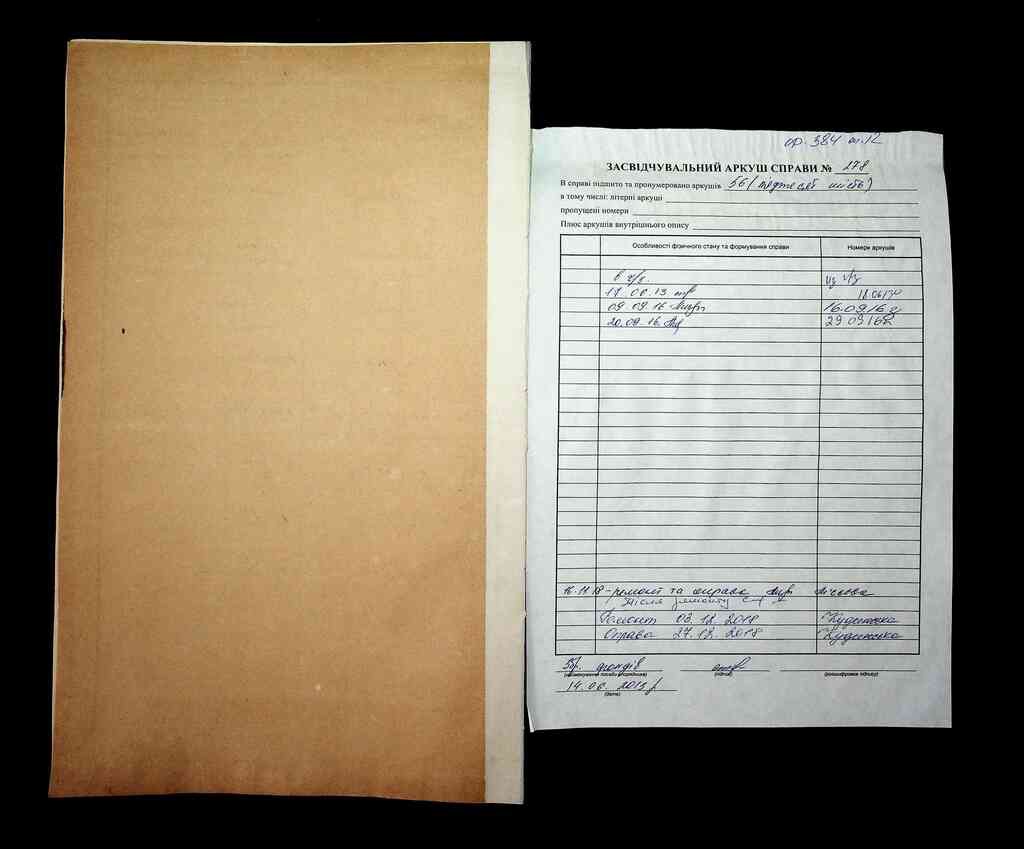 ор. 384 т.12
ЗАСВІДЧУВАЛЬНИЙ АРКУШ СПРАВИ № 278
В справі підшито та пронумеровано аркушів 56 (п'ятдесят шість)
в тому числі: літерні аркуші
пропущені номери
Плюс аркушів внутрішнього опису
Особливості фізичного стану та формування справи Номери аркушів
в ч/з. из ч/з
17.06.13 18.06.13
09.09.16 16.09.16
20.09.16 29.09.16
16.11.18 - ремонт та оправа
Після ремонту
Ремонт 03.12.2018 Кудинська
Оправа 27.12.2018 Кудинська
фондів
(найменування посади працівника) (підпис) (розшифровка підпису)
14.06.2013 р
(дата)